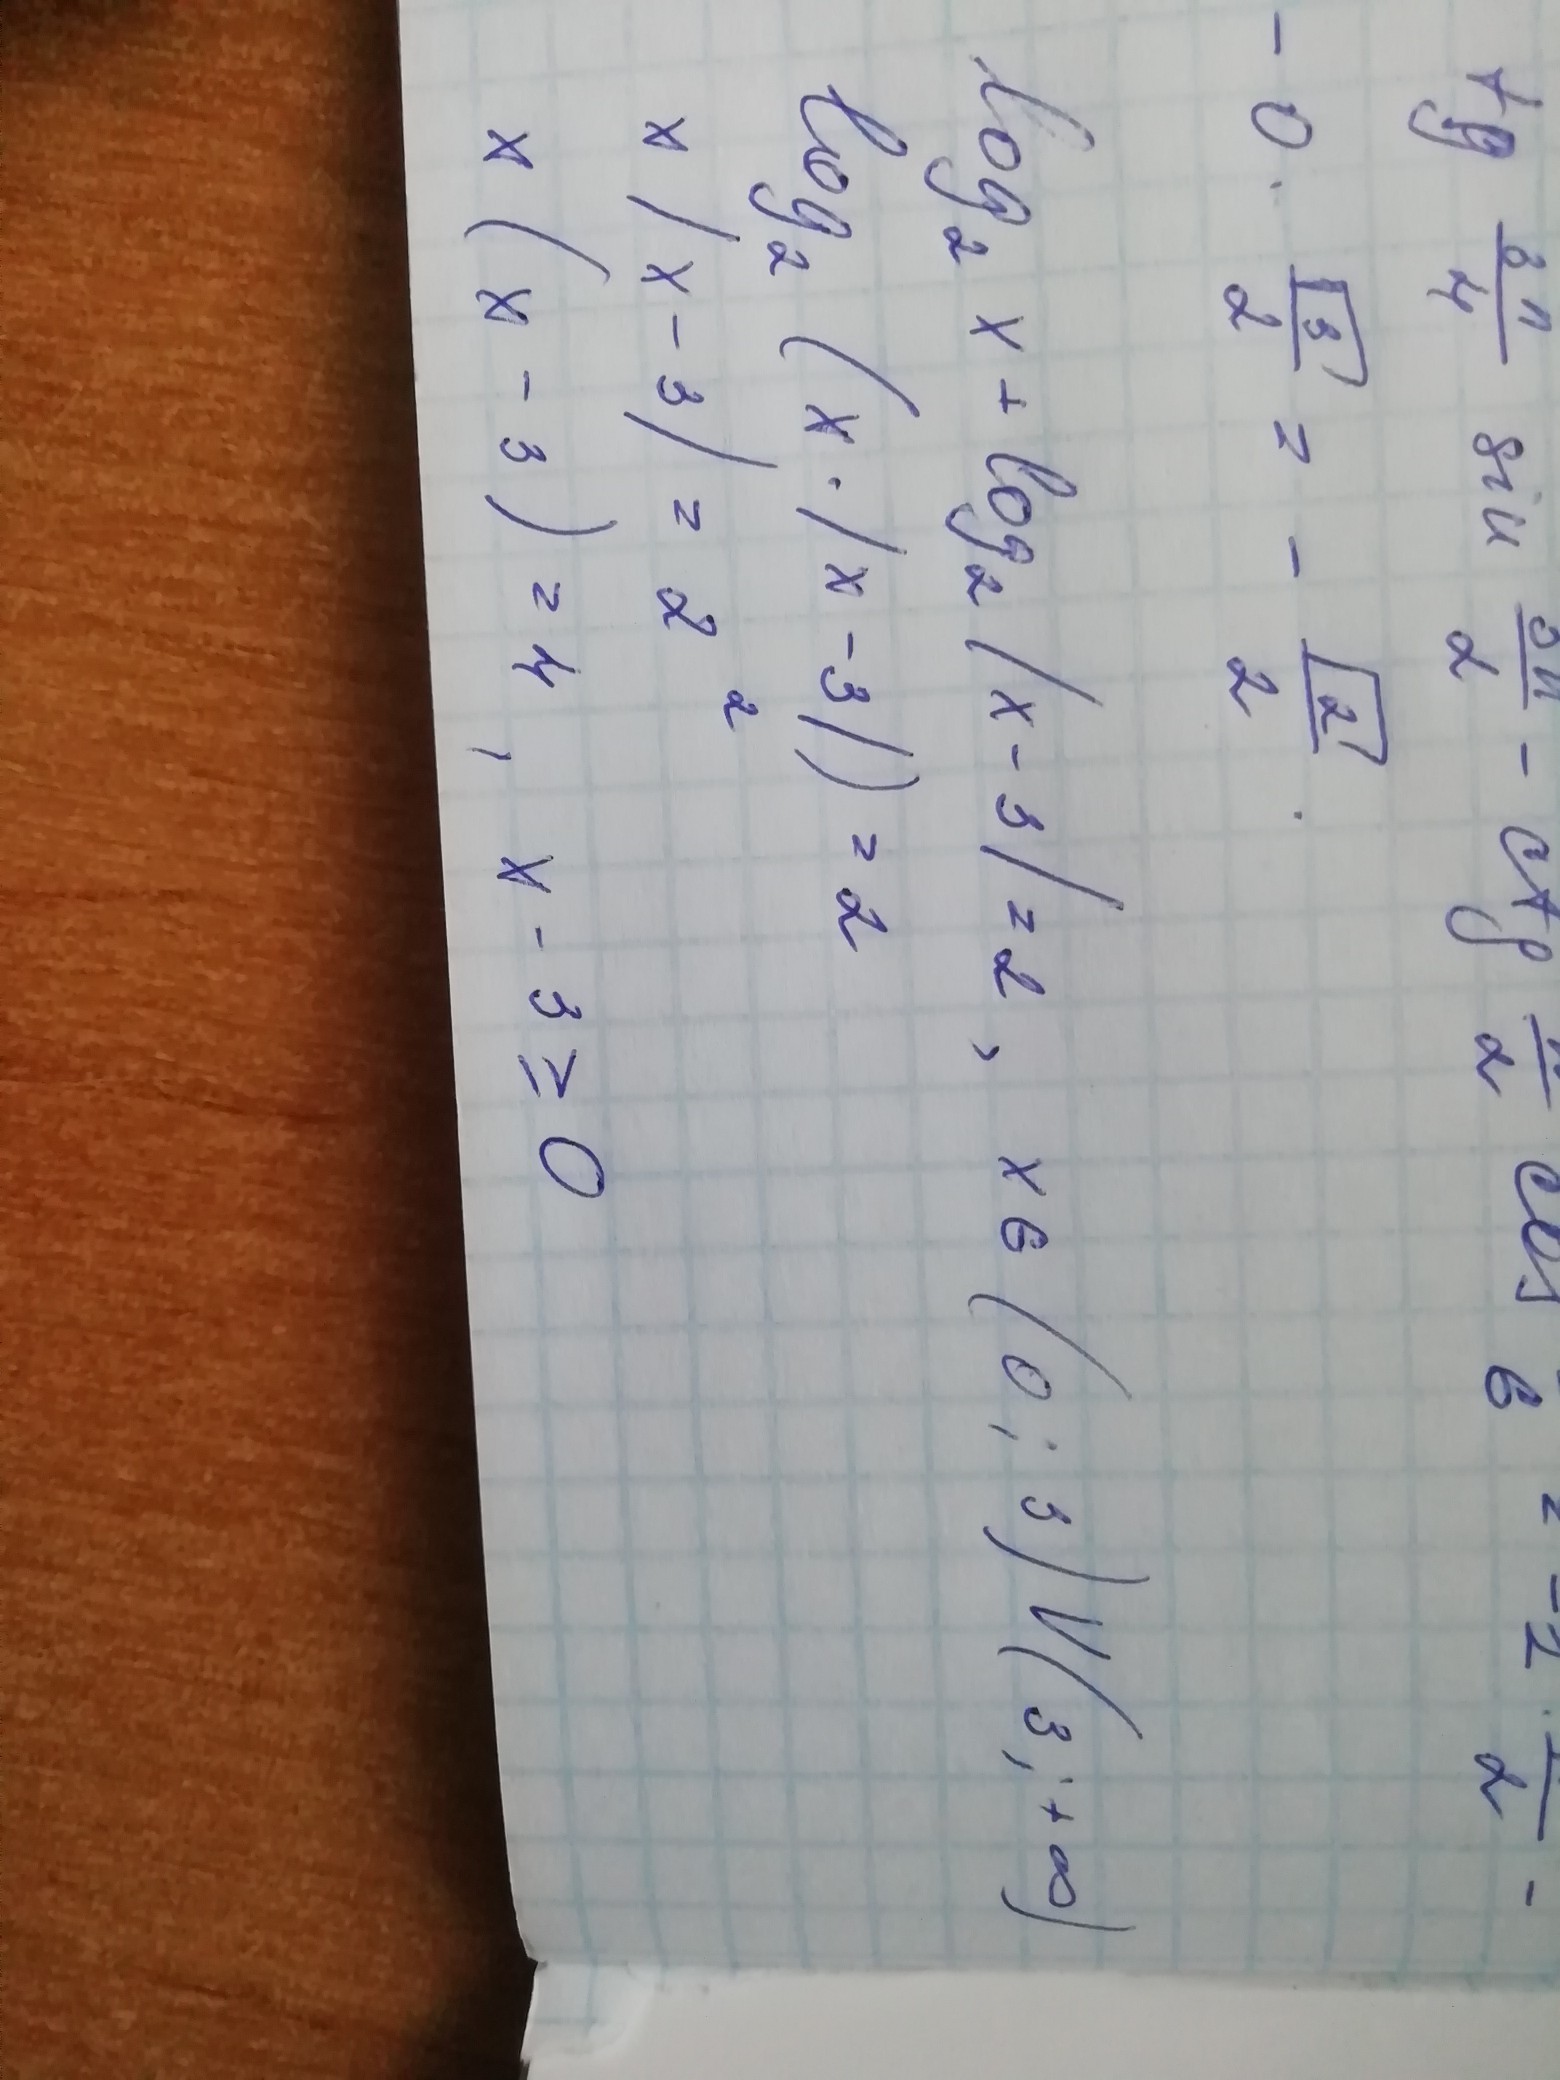 tg 3π/4 sin 3π/2 - ctg π/2 cos π/6 = -1 · 1/2 -
- 0 · √3/2 = - √2/2 .
log₂ x + log₂ |x - 3| = 2, x ∈ (0; 3) V (3; +∞)
log₂ (x · |x - 3|) = 2
x |x - 3| = 2²
x (x - 3) = 4, x - 3 ≥ 0